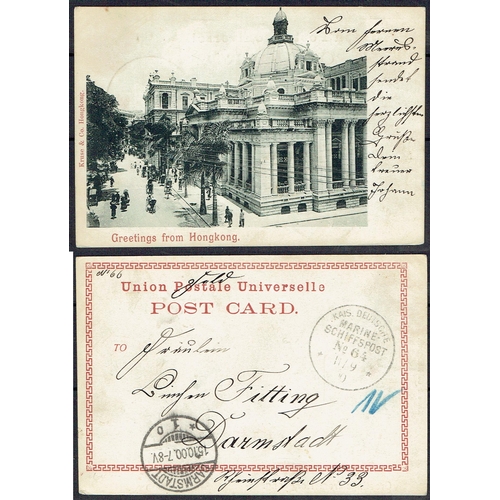 Vom fernen
Meeres-
strand
sendet
die
herzlichsten
Grüße
Dein
treuer
Johann
Kruse & Co. Hongkong.
Greetings from Hongkong.
No 66
Union Postale Universelle
POST CARD.
KAIS. DEUTSCHE
MARINE-
SCHIFFSPOST
No 64
11/9
TO Fräulein
Linchen Fitting
Darmstadt
Rheinstraße N. 33.
DARMSTADT
* 1 c
15.10.00.7-8V.